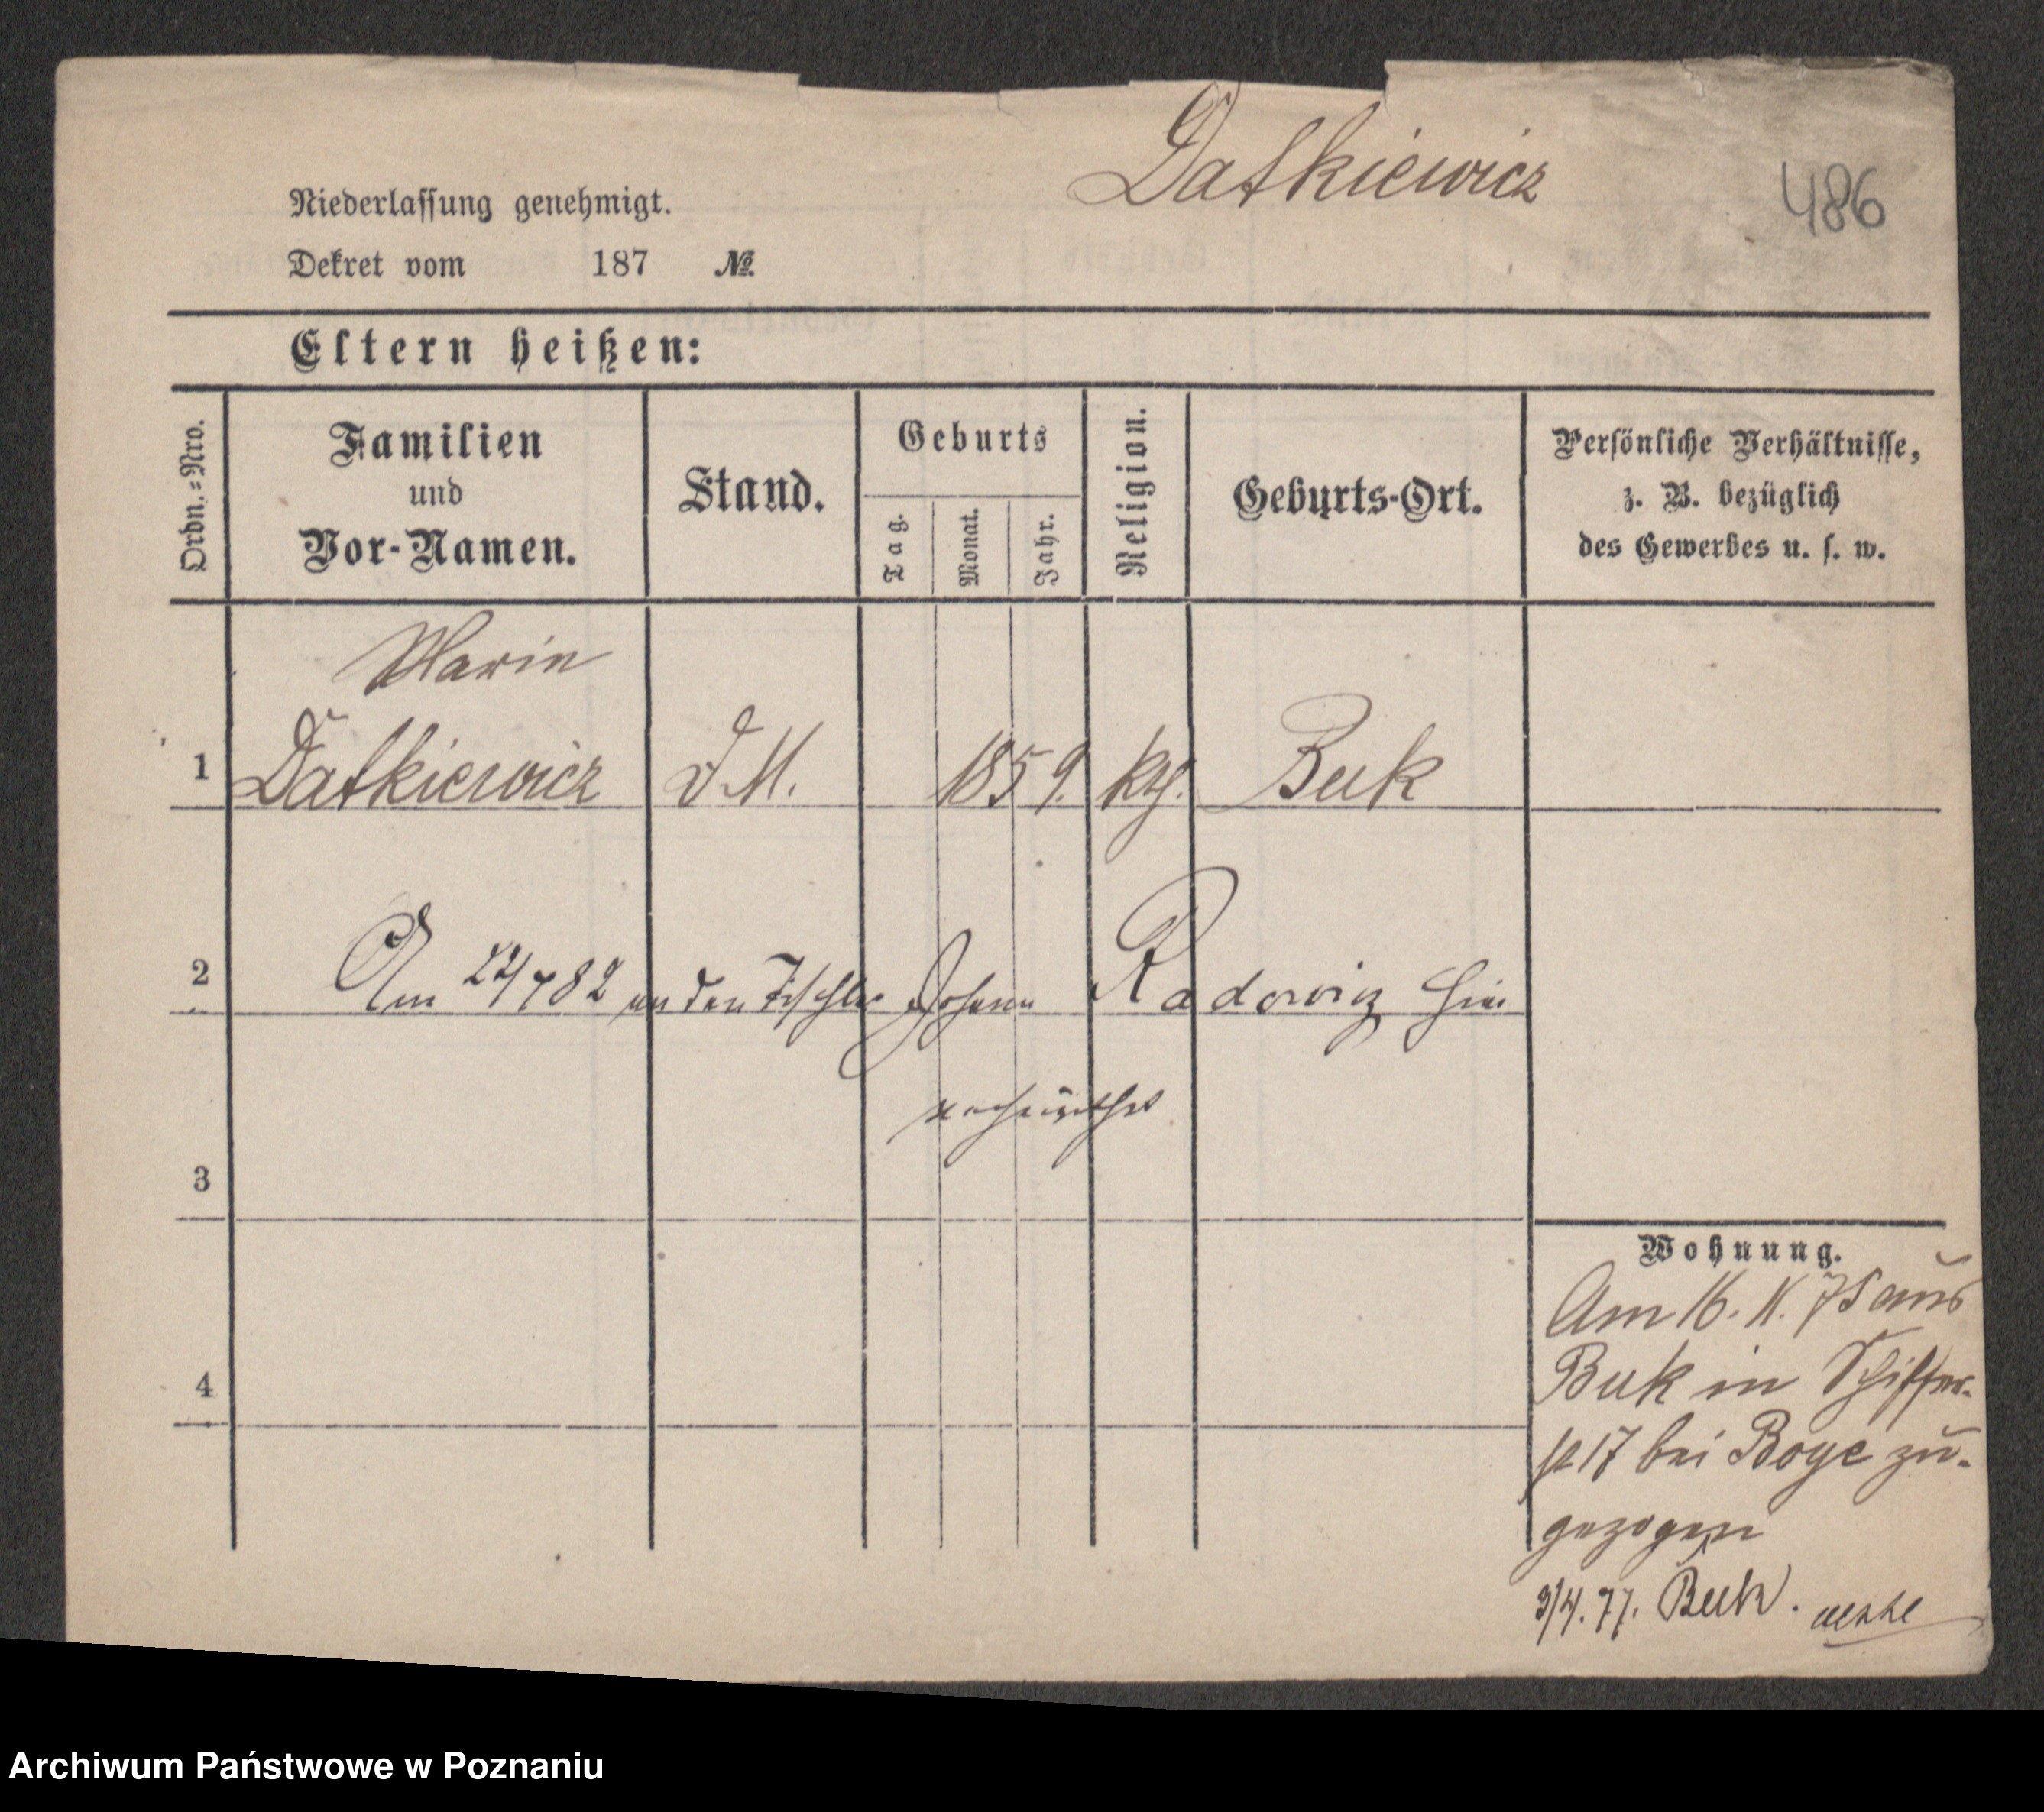 Datkiewicz
486
Niederlassung genehmigt.
Dekret vom 187 №
Eltern heißen:
Ordn.=Nro.
Familien
und
Vor-Namen.
Stand.
Geburts
Tag.
Monat.
Jahr.
Religion.
Geburts-Ort.
Persönliche Verhältnisse,
z. B. bezüglich
des Gewerbes u. s. w.
Marie
1 Datkiewicz D.M. 1859. kth. Buk
2 Am 24/7 82 an den Tischler Johann Radowicz hier
verheirathet
3
4
Wohnung.
Am 16. 11. 75 aus
Buk in Schiffer-
st 17 bei Boye zu-
gezogen
3/4. 77. Buk.
Archiwum Państwowe w Poznaniu